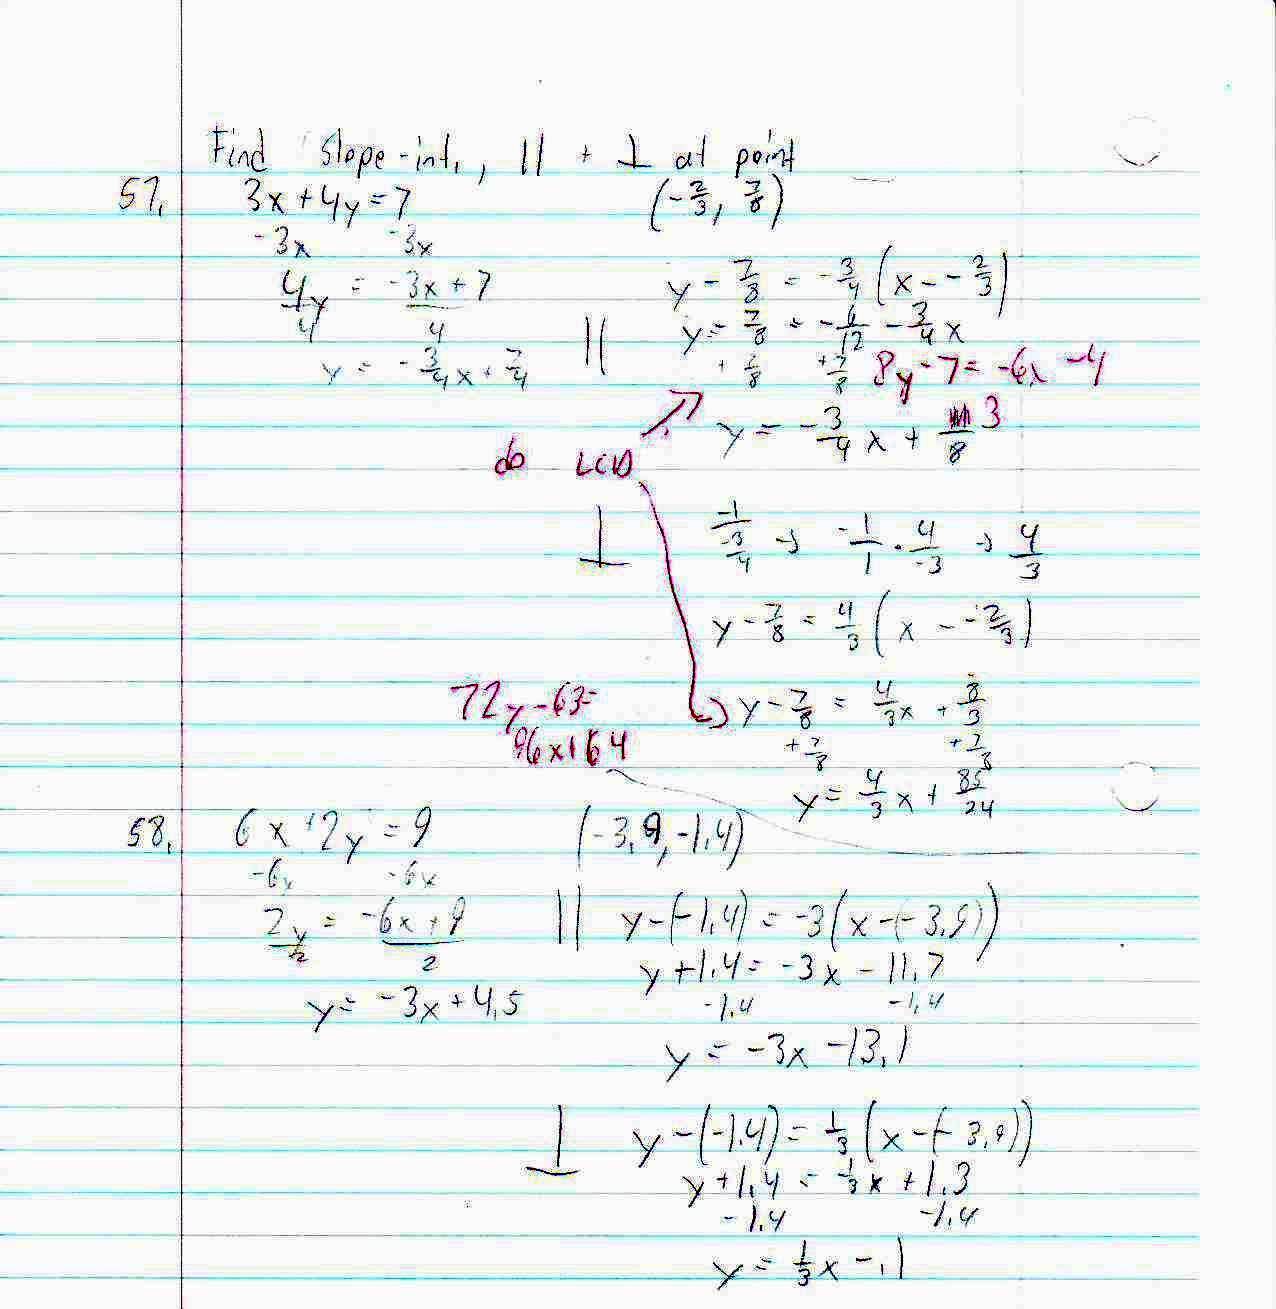 Find slope-int., || + ⊥ at point
57. 3x + 4y = 7 (-2/3, 7/8)
-3x -3x
4y/4 = (-3x + 7)/4
y = -3/4x + 7/4
|| y - 7/8 = -3/4(x - -2/3)
y = 7/8 = -6/12 - 3/4x
+ 7/8 + 7/8 8y - 7 = -6x - 4
y = -3/4x + 3/8
do LCD
⊥ -1/(-3/4) → -1/1 · 4/-3 → 4/3
y - 7/8 = 4/3(x - -2/3)
y - 7/8 = 4/3x + 8/3
72y - 63 =
96x + 64
+ 7/8 + 7/8
y = 4/3x + 85/24
58. 6x + 2y = 9 (-3.9, -1.4)
-6x -6x
2y/2 = (-6x + 9)/2
y = -3x + 4.5
|| y - (-1.4) = -3(x - (-3.9))
y + 1.4 = -3x - 11.7
-1.4 -1.4
y = -3x - 13.1
⊥ y - (-1.4) = 1/3(x - (-3.9))
y + 1.4 = 1/3x + 1.3
-1.4 -1.4
y = 1/3x - .1